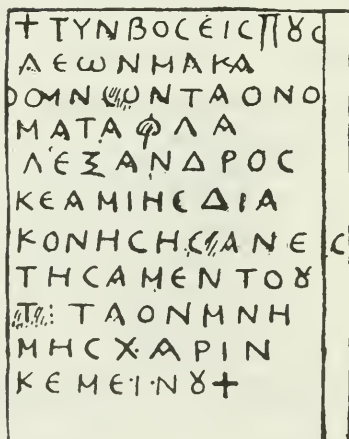 +ΤΥΝΒΟϹΕΙϹΠȢϹ
ΛΕωΝΜΑΚΑ
ΟΜΝωΝΤΑΟΝΟ
ΜΑΤΑΦΛΑ
ΛΕΞΑΝΔΡΟϹ
ΚΕΑΜΙΗϹΔΙΑ
ΚΟΝΗϹΗϹΑΝΕϹ
ΤΗϹΑΜΕΝΤΟȢ
ΤΑΟΝΜΝΗ
ΜΗϹΧΑΡΙΝ
ΚΕΜΕΙΝȢ+